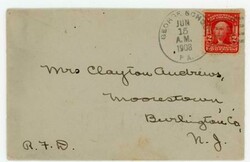 JUN
15
A.M.
1908
PA.
Mrs Clayton Andrews,
Moorestown,
Burlington Co.
R.F.D. N.J.